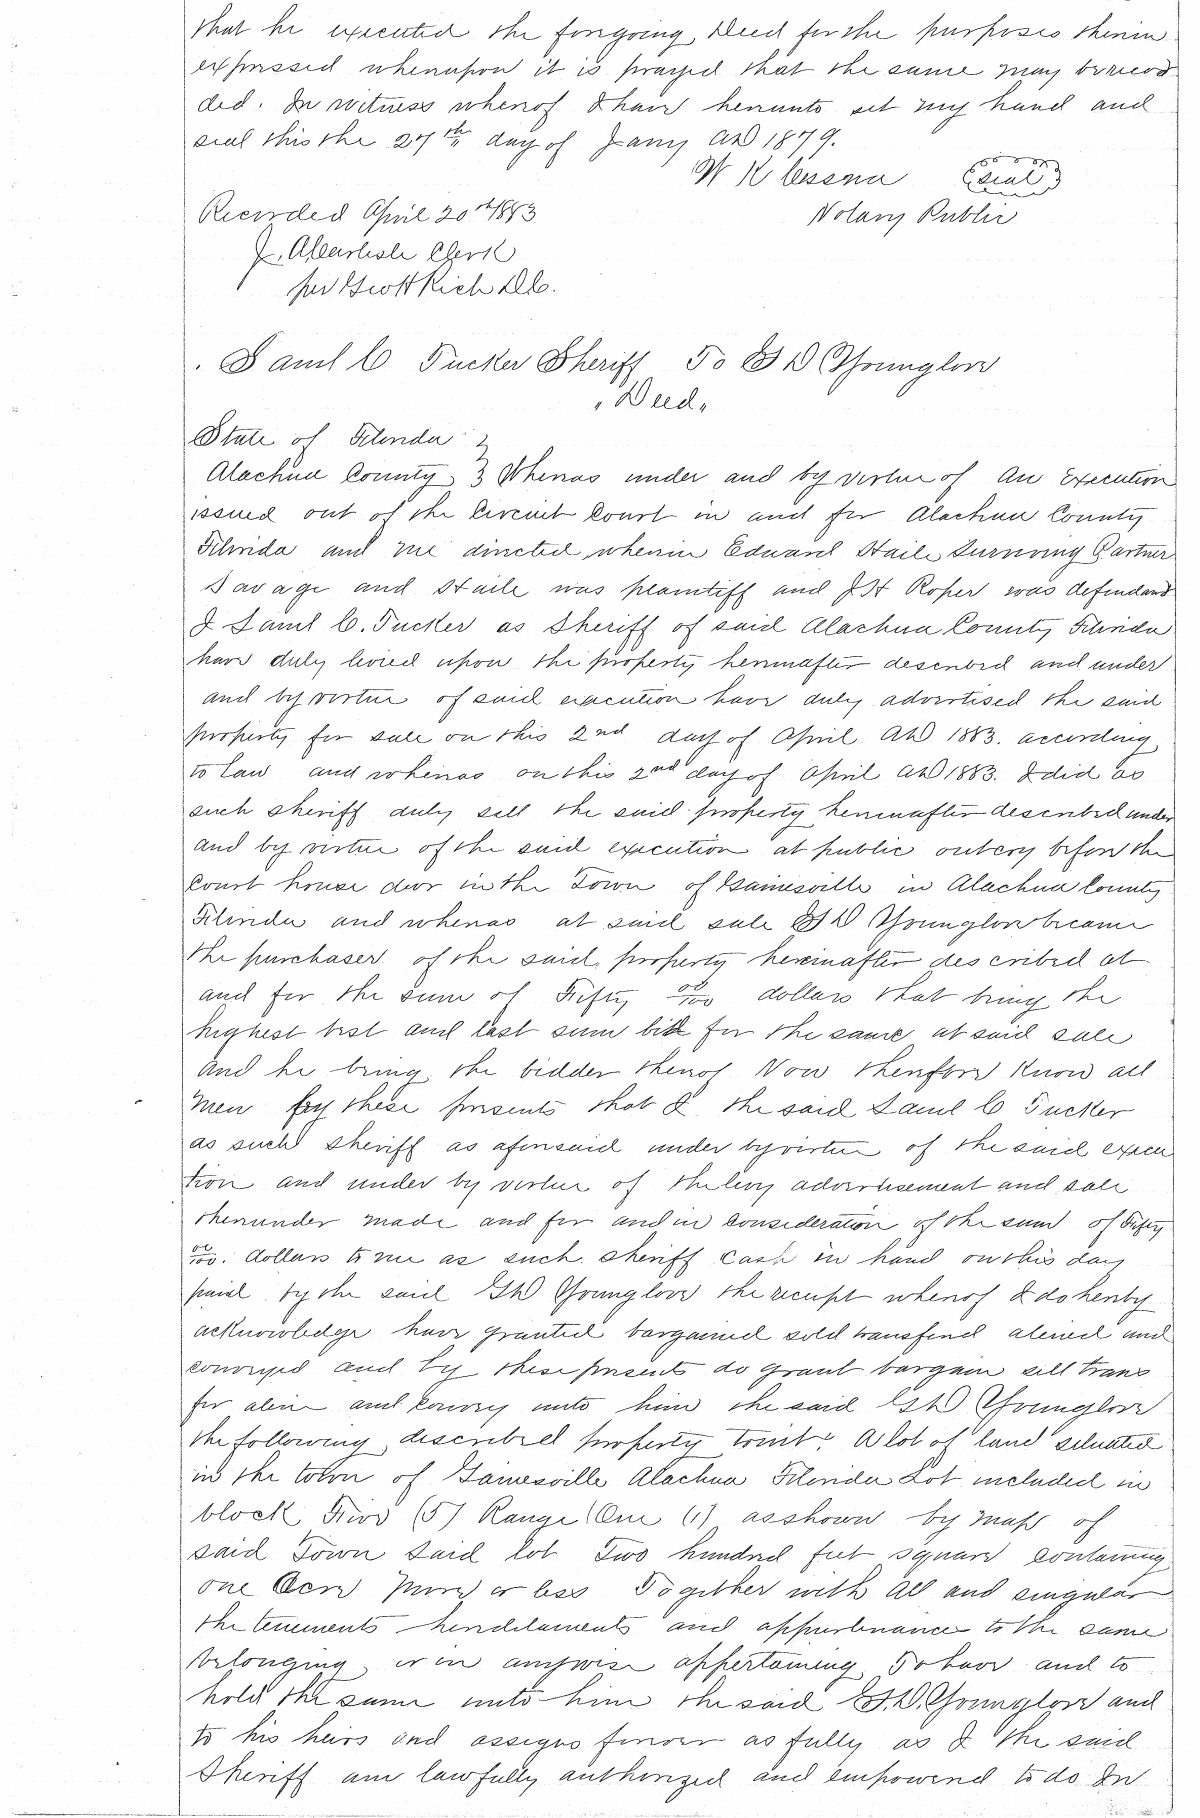 that he executed the foregoing Deed for the purposes therein
expressed whereupon it is prayed that the same may be recor
ded. In witness whereof I have hereunto set my hand and
seal this the 27th day of Jany AD 1879.
W K Cessna (Seal)
Recorded April 20th 1883 Notary Public
J. A. Carlisle Clerk
per Rich D.C.
Saml C Tucker Sheriff To E D Younglove
"Deed"
State of Florida }
Alachua County } Whereas under and by virtue of An Execution
issued out of the Circuit Court in and for Alachua County
Florida and me directed wherein Edward Haile Surviving Partner
Savage and Haile was plaintiff and J H Roper was defendant
I Saml C. Tucker as Sheriff of said Alachua County Florida
have duly levied upon the property hereinafter described and under
and by virtue of said execution have duly advertised the said
property for sale on this 2nd day of April AD 1883. according
to law and whereas on this 2nd day of April AD 1883. I did as
such sheriff duly sell the said property hereinafter described under
and by virtue of the said execution at public outcry before the
Court house door in the Town of Gainesville in Alachua County
Florida and whereas at said sale D Younglove became
the purchaser of the said property hereinafter described at
and for the sum of Fifty 00/100 dollars that being the
highest best and last sum bid for the same at said sale
And he being the bidder thereof Now therefore Know all
Men by these presents that I the said Saml C Tucker
as such sheriff as aforesaid under by virtue of the said execu
tion and under by virtue of the levy advertisement and sale
thereunder made and for and in Consideration of the sum of Fifty
00/100. dollars to me as such sheriff Cash in hand on this day
paid by the said D Younglove the receipt whereof I do hereby
acknowledge have granted bargained sold transferred aliened and
conveyed and by these presents do grant bargain sell trans
fer alien and Convey unto him the said D Younglove
the following described property towit. A lot of land situated
in the town of Gainesville Alachua Florida Lot included in
block Five (5) Range One (1) as shown by map of
said Town Said lot Two hundred feet square containing
one Acre More or less Together with All and singular
the tenements hereditaments and appurtenances to the same
belonging or in anywise appertaining To have and to
hold the same unto him the said D. Younglove and
to his heirs and assigns forever as fully as I the said
Sheriff am lawfully authorized and empowered to do In